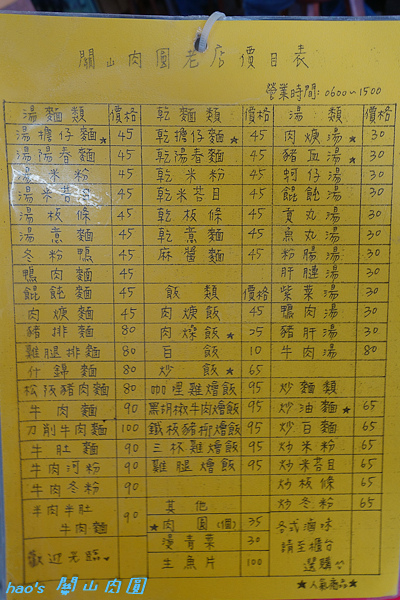 關山肉圓老店價目表
營業時間:0600~1500
湯麵類 價格
湯擔仔麵★ 45
湯陽春麵 45
湯米粉 45
湯米苔目 45
湯板條 45
湯意麵 45
冬粉鴨 45
鴨肉麵 45
餛飩麵 45
肉焿麵 45
豬排麵 80
雞腿排麵 80
什錦麵 80
松阪豬肉麵 80
牛肉麵 90
刀削牛肉麵 100
牛肚麵 90
牛肉河粉 90
牛肉冬粉 90
半肉半肚
牛肉麵 90
歡迎光臨
乾麵類 價格
乾擔仔麵★ 45
乾陽春麵 45
乾米粉 45
乾米苔目 45
乾板條 45
乾意麵 45
麻醬麵 45
飯類 價格
肉焿飯 45
肉燥飯★ 25
白飯 10
炒飯★ 65
咖哩雞燴飯 95
黑胡椒牛肉燴飯 95
鐵板豬排燴飯 95
三杯雞燴飯 95
雞腿燴飯 95
其他
★肉圓(個) 35
燙青菜 30
生魚片 100
湯類 價格
肉焿湯★ 30
豬血湯★ 30
蚵仔湯 30
餛飩湯 30
貢丸湯 30
魚丸湯 30
粉腸湯 30
肝腱湯 30
紫菜湯 30
鴨肉湯 30
豬肝湯 30
牛肉湯 80
炒麵類
炒油麵★ 65
炒白麵 65
炒米粉 65
炒米苔目 65
炒板條 65
炒冬粉 65
各式滷味
請至櫃台
選購
★人氣商品★
hao's 關山肉圓